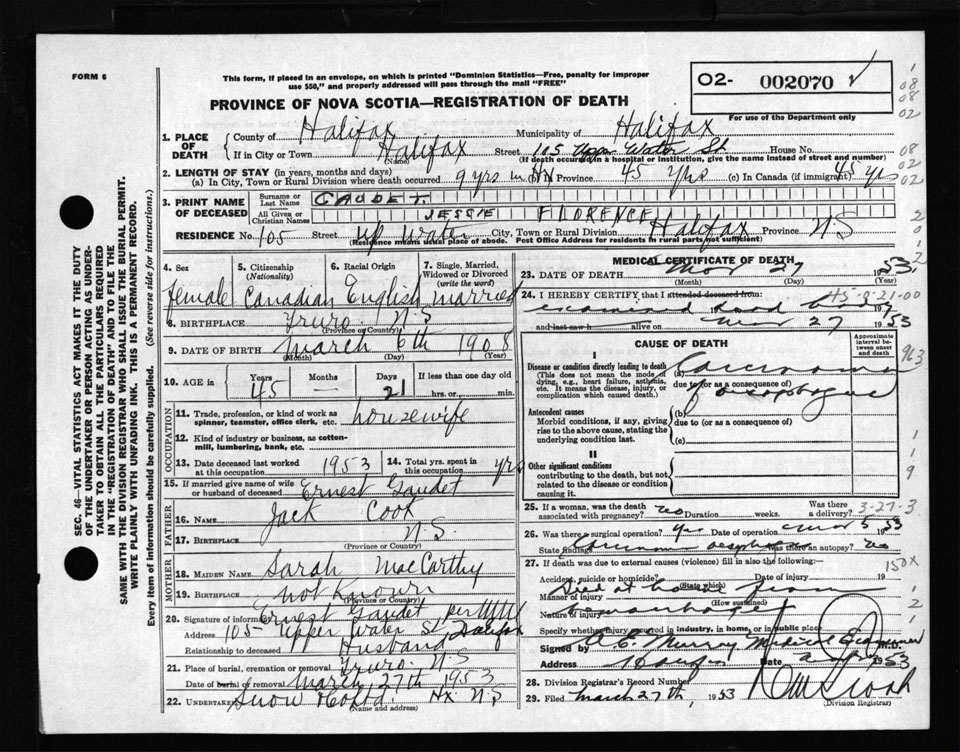 FORM 6
This form, if placed in an envelope, on which is printed "Dominion Statistics—Free, penalty for improper
use $50," and properly addressed will pass through the mail "FREE"
O2- 002070
For use of the Department only
PROVINCE OF NOVA SCOTIA—REGISTRATION OF DEATH
1. PLACE OF DEATH { County of Halifax Municipality of Halifax
If in City or Town Halifax Street 105 Upper Water St. House No.
(Name) (If death occurred in a hospital or institution, give the name instead of street and number)
2. LENGTH OF STAY (in years, months and days)
(a) In City, Town or Rural Division where death occurred 9 yrs in Hx (b) In Province 45 yrs (c) In Canada (if immigrant) 45 yrs
3. PRINT NAME OF DECEASED { Surname or Last Name GAUDET
All Given or Christian Names JESSIE FLORENCE
RESIDENCE No. 105 Street Up Water City, Town or Rural Division Halifax Province N.S
(Residence means usual place of abode. Post Office Address for residents in rural parts not sufficient)
4. Sex female
5. Citizenship (Nationality) Canadian
6. Racial Origin English
7. Single, Married, Widowed or Divorced (write the word) married
8. BIRTHPLACE Truro N.S
(Province or Country)
9. DATE OF BIRTH March 6th 1908
(Month) (Day) (Year)
10. AGE in { Years 45 Months — Days 21 If less than one day old hrs. or min.
OCCUPATION
11. Trade, profession, or kind of work as spinner, teamster, office clerk, etc. housewife
12. Kind of industry or business, as cotton-mill, lumbering, bank, etc.
13. Date deceased last worked at this occupation 1953
14. Total yrs. spent in this occupation yrs
15. If married give name of wife or husband of deceased Ernest Gaudet
FATHER
16. Name Jack Cook
17. Birthplace N.S.
(Province or Country)
MOTHER
18. Maiden Name Sarah MacCarthy
19. Birthplace not Known
(Province or Country)
20. Signature of informant Ernest Gaudet per
Address 105 Upper Water St, Halifax
Relationship to deceased Husband
21. Place of burial, cremation or removal Truro N.S
Date of burial or removal March 27th 1953
22. Undertaker Snow Co Ltd. Hx N.S
(Name and address)
MEDICAL CERTIFICATE OF DEATH
23. DATE OF DEATH Mar 27 1953
(Month) (Day) (Year)
24. I HEREBY CERTIFY that I attended deceased from
examined dead body
and last saw h alive on Mar 27 1953
CAUSE OF DEATH
Approximate interval between onset and death
I
Disease or condition directly leading to death
(This does not mean the mode of dying, e.g., heart failure, asthenia, etc. It means the disease, injury, or complication which caused death.)
(a) Carcinoma
due to (or as a consequence of) of oesophagus
Antecedent causes
Morbid conditions, if any, giving rise to the above cause, stating the underlying condition last.
(b)
due to (or as a consequence of)
(c)
II
Other significant conditions
contributing to the death, but not related to the disease or condition causing it.
25. If a woman, was the death associated with pregnancy? no Duration weeks. Was there a delivery?
3-27-3
26. Was there a surgical operation? yes Date of operation Mar 5 1953
State findings Carcinoma oesophagus Was there an autopsy? no
27. If death was due to external causes (violence) fill in also the following:
Accident, suicide or homicide? Date of injury 19
(State which)
Manner of injury Died at home from
(How sustained)
Nature of injury hemorrhage
Specify whether injury occurred in industry, in home, or in public place
Signed by A. E. Murray Medical Examiner M.D.
Address Halifax Date 1953
28. Division Registrar's Record Number
29. Filed March 27th, 1953
(Division Registrar)
SEC. 46—VITAL STATISTICS ACT MAKES IT THE DUTY
OF THE UNDERTAKER OR PERSON ACTING AS UNDER-
TAKER TO OBTAIN ALL THE PARTICULARS REQUIRED
IN THE "REGISTRATION OF DEATH" AND TO FILE THE
SAME WITH THE DIVISION REGISTRAR WHO SHALL ISSUE THE BURIAL PERMIT.
WRITE PLAINLY WITH UNFADING INK. THIS IS A PERMANENT RECORD.
Every item of information should be carefully supplied. (See reverse side for instructions.)